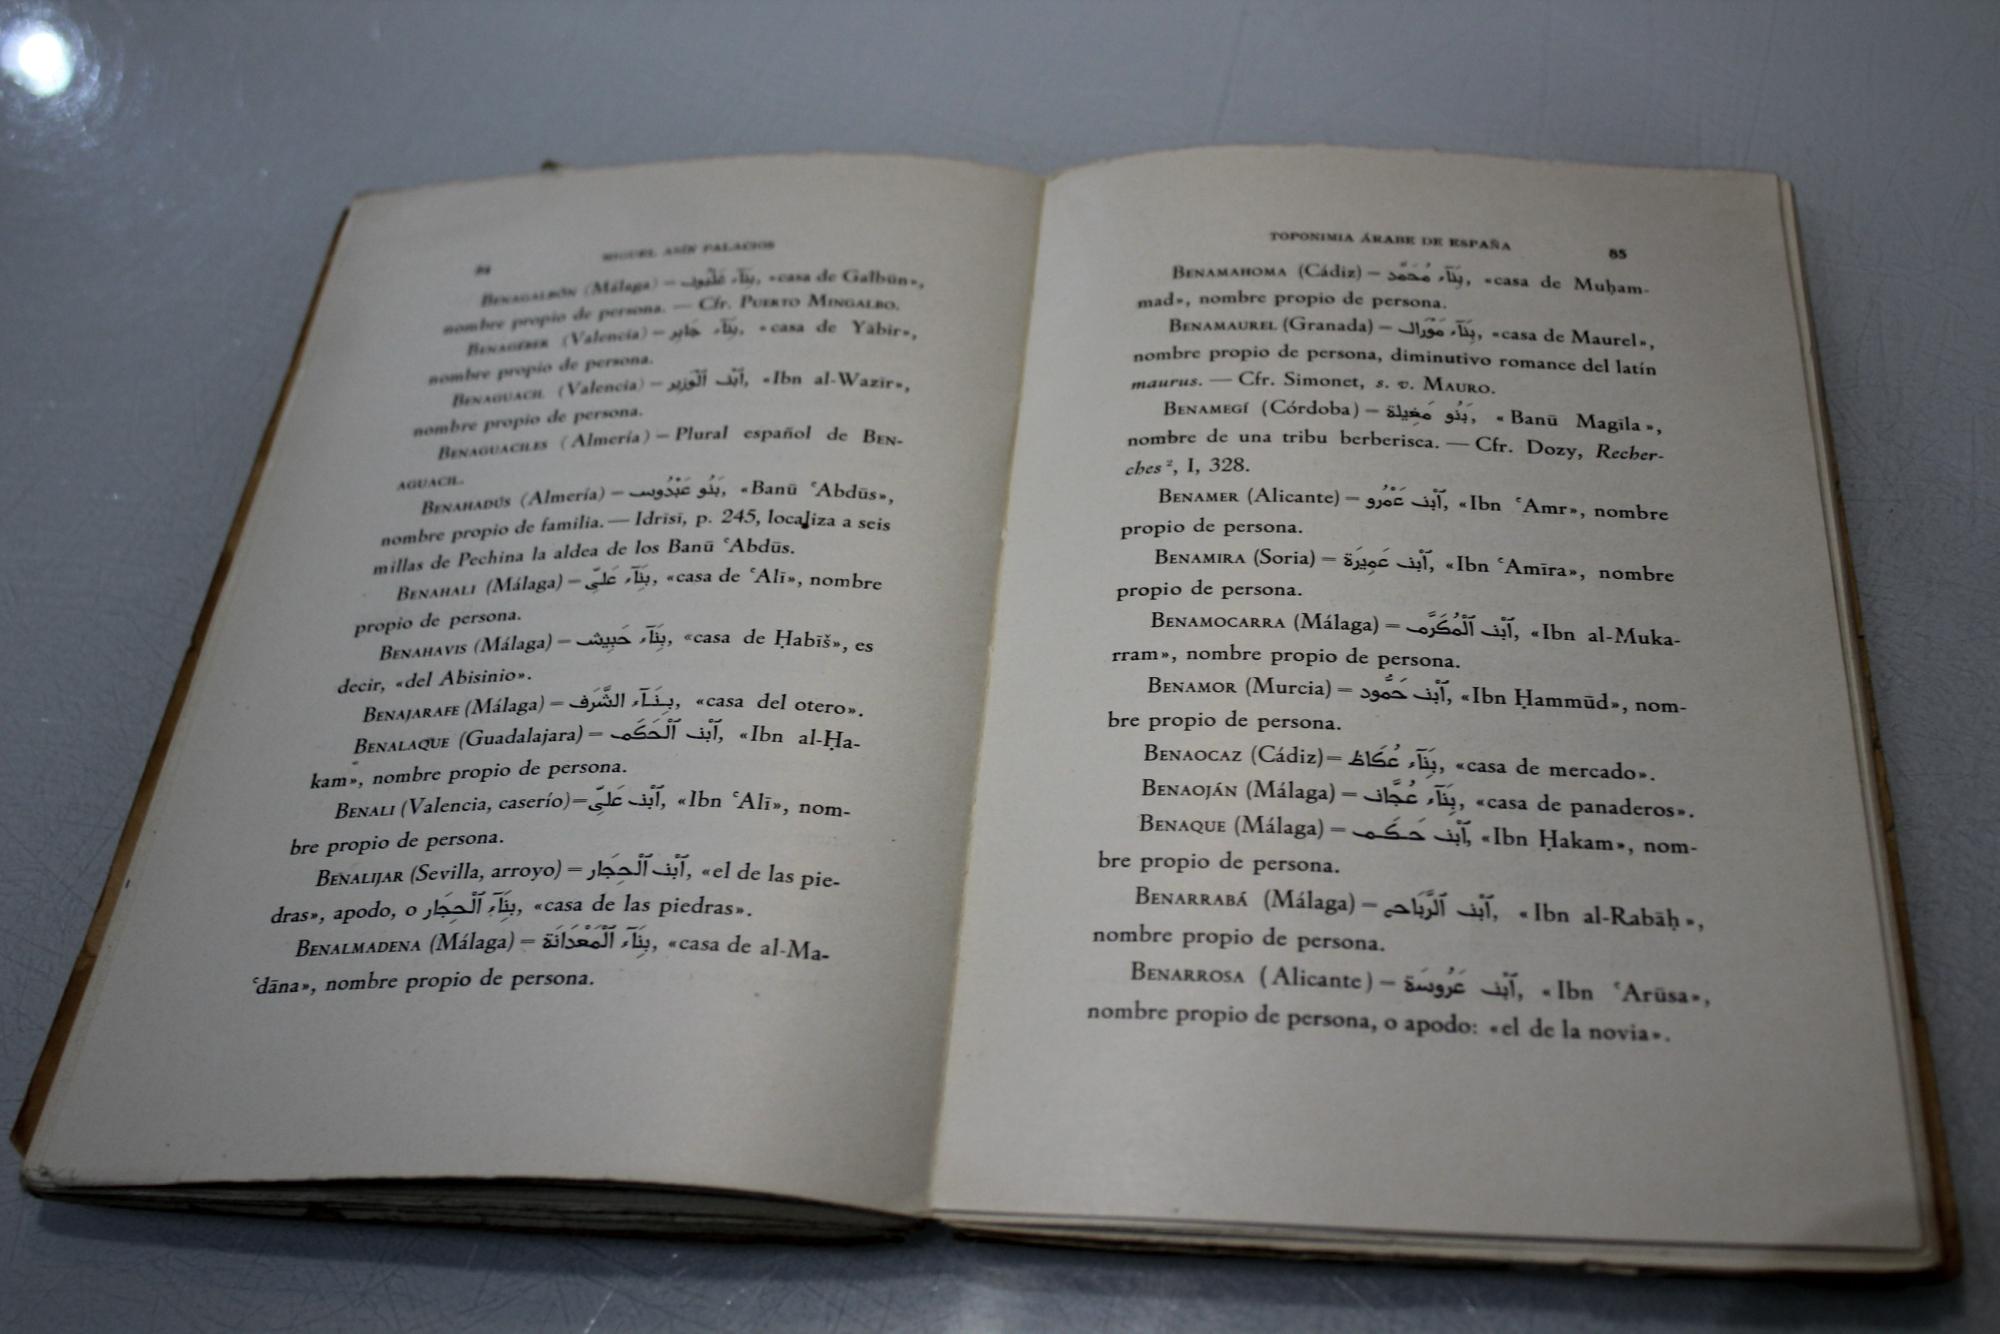 84
MIGUEL ASÍN PALACIOS
BENAGALBÓN (Málaga) — بِنَآء غَلْبُون, «casa de Galbūn»,
nombre propio de persona. — Cfr. PUERTO MINGALBO.
BENAGEBER (Valencia) — بِنَآء جَابِر, «casa de Ŷābir»,
nombre propio de persona.
BENAGUACIL (Valencia) — ٱبْن ٱلْوَزِير, «Ibn al-Wazīr»,
nombre propio de persona.
BENAGUACILES (Almería) — Plural español de BEN-
AGUACIL.
BENAHADÚS (Almería) — بَنُو عَبْدُوس, «Banū ʿAbdūs»,
nombre propio de familia. — Idrīsī, p. 245, localiza a seis
millas de Pechina la aldea de los Banū ʿAbdūs.
BENAHALI (Málaga) — بِنَآء عَلِيّ, «casa de ʿAlī», nombre
propio de persona.
BENAHAVIS (Málaga) — بِنَآء حَبِيش, «casa de Ḥabīš», es
decir, «del Abisinio».
BENAJARAFE (Málaga) — بِنَآء الشَّرَف, «casa del otero».
BENALAQUE (Guadalajara) — ٱبْن ٱلْحَكَم, «Ibn al-Ḥa-
kam», nombre propio de persona.
BENALI (Valencia, caserío) — ٱبْن عَلِيّ, «Ibn ʿAlī», nom-
bre propio de persona.
BENALIJAR (Sevilla, arroyo) — ٱبْن ٱلْحِجَار, «el de las pie-
dras», apodo, o بِنَآء ٱلْحِجَار, «casa de las piedras».
BENALMADENA (Málaga) — بِنَآء ٱلْمَعْدَانَة, «casa de al-Ma-
ʿdāna», nombre propio de persona.
TOPONIMIA ÁRABE DE ESPAÑA
85
BENAMAHOMA (Cádiz) — بِنَآء مُحَمَّد, «casa de Muḥam-
mad», nombre propio de persona.
BENAMAUREL (Granada) — بِنَآء مَوْرَال, «casa de Maurel»,
nombre propio de persona, diminutivo romance del latín
maurus. — Cfr. Simonet, s. v. MAURO.
BENAMEGÍ (Córdoba) — بَنُو مَغِيلَة, «Banū Magīla»,
nombre de una tribu berberisca. — Cfr. Dozy, Recher-
ches², I, 328.
BENAMER (Alicante) — ٱبْن عَمْرو, «Ibn ʿAmr», nombre
propio de persona.
BENAMIRA (Soria) — ٱبْن عَمِيرَة, «Ibn ʿAmīra», nombre
propio de persona.
BENAMOCARRA (Málaga) — ٱبْن ٱلْمُكَرَّم, «Ibn al-Muka-
rram», nombre propio de persona.
BENAMOR (Murcia) — ٱبْن حَمُّود, «Ibn Ḥammūd», nom-
bre propio de persona.
BENAOCAZ (Cádiz) — بِنَآء عُكَاظ, «casa de mercado».
BENAOJÁN (Málaga) — بِنَآء عُجَّان, «casa de panaderos».
BENAQUE (Málaga) — ٱبْن حَكَم, «Ibn Ḥakam», nom-
bre propio de persona.
BENARRABÁ (Málaga) — ٱبْن ٱلرَّبَاح, «Ibn al-Rabāḥ»,
nombre propio de persona.
BENARROSA (Alicante) — ٱبْن عَرُوسَة, «Ibn ʿArūsa»,
nombre propio de persona, o apodo: «el de la novia».